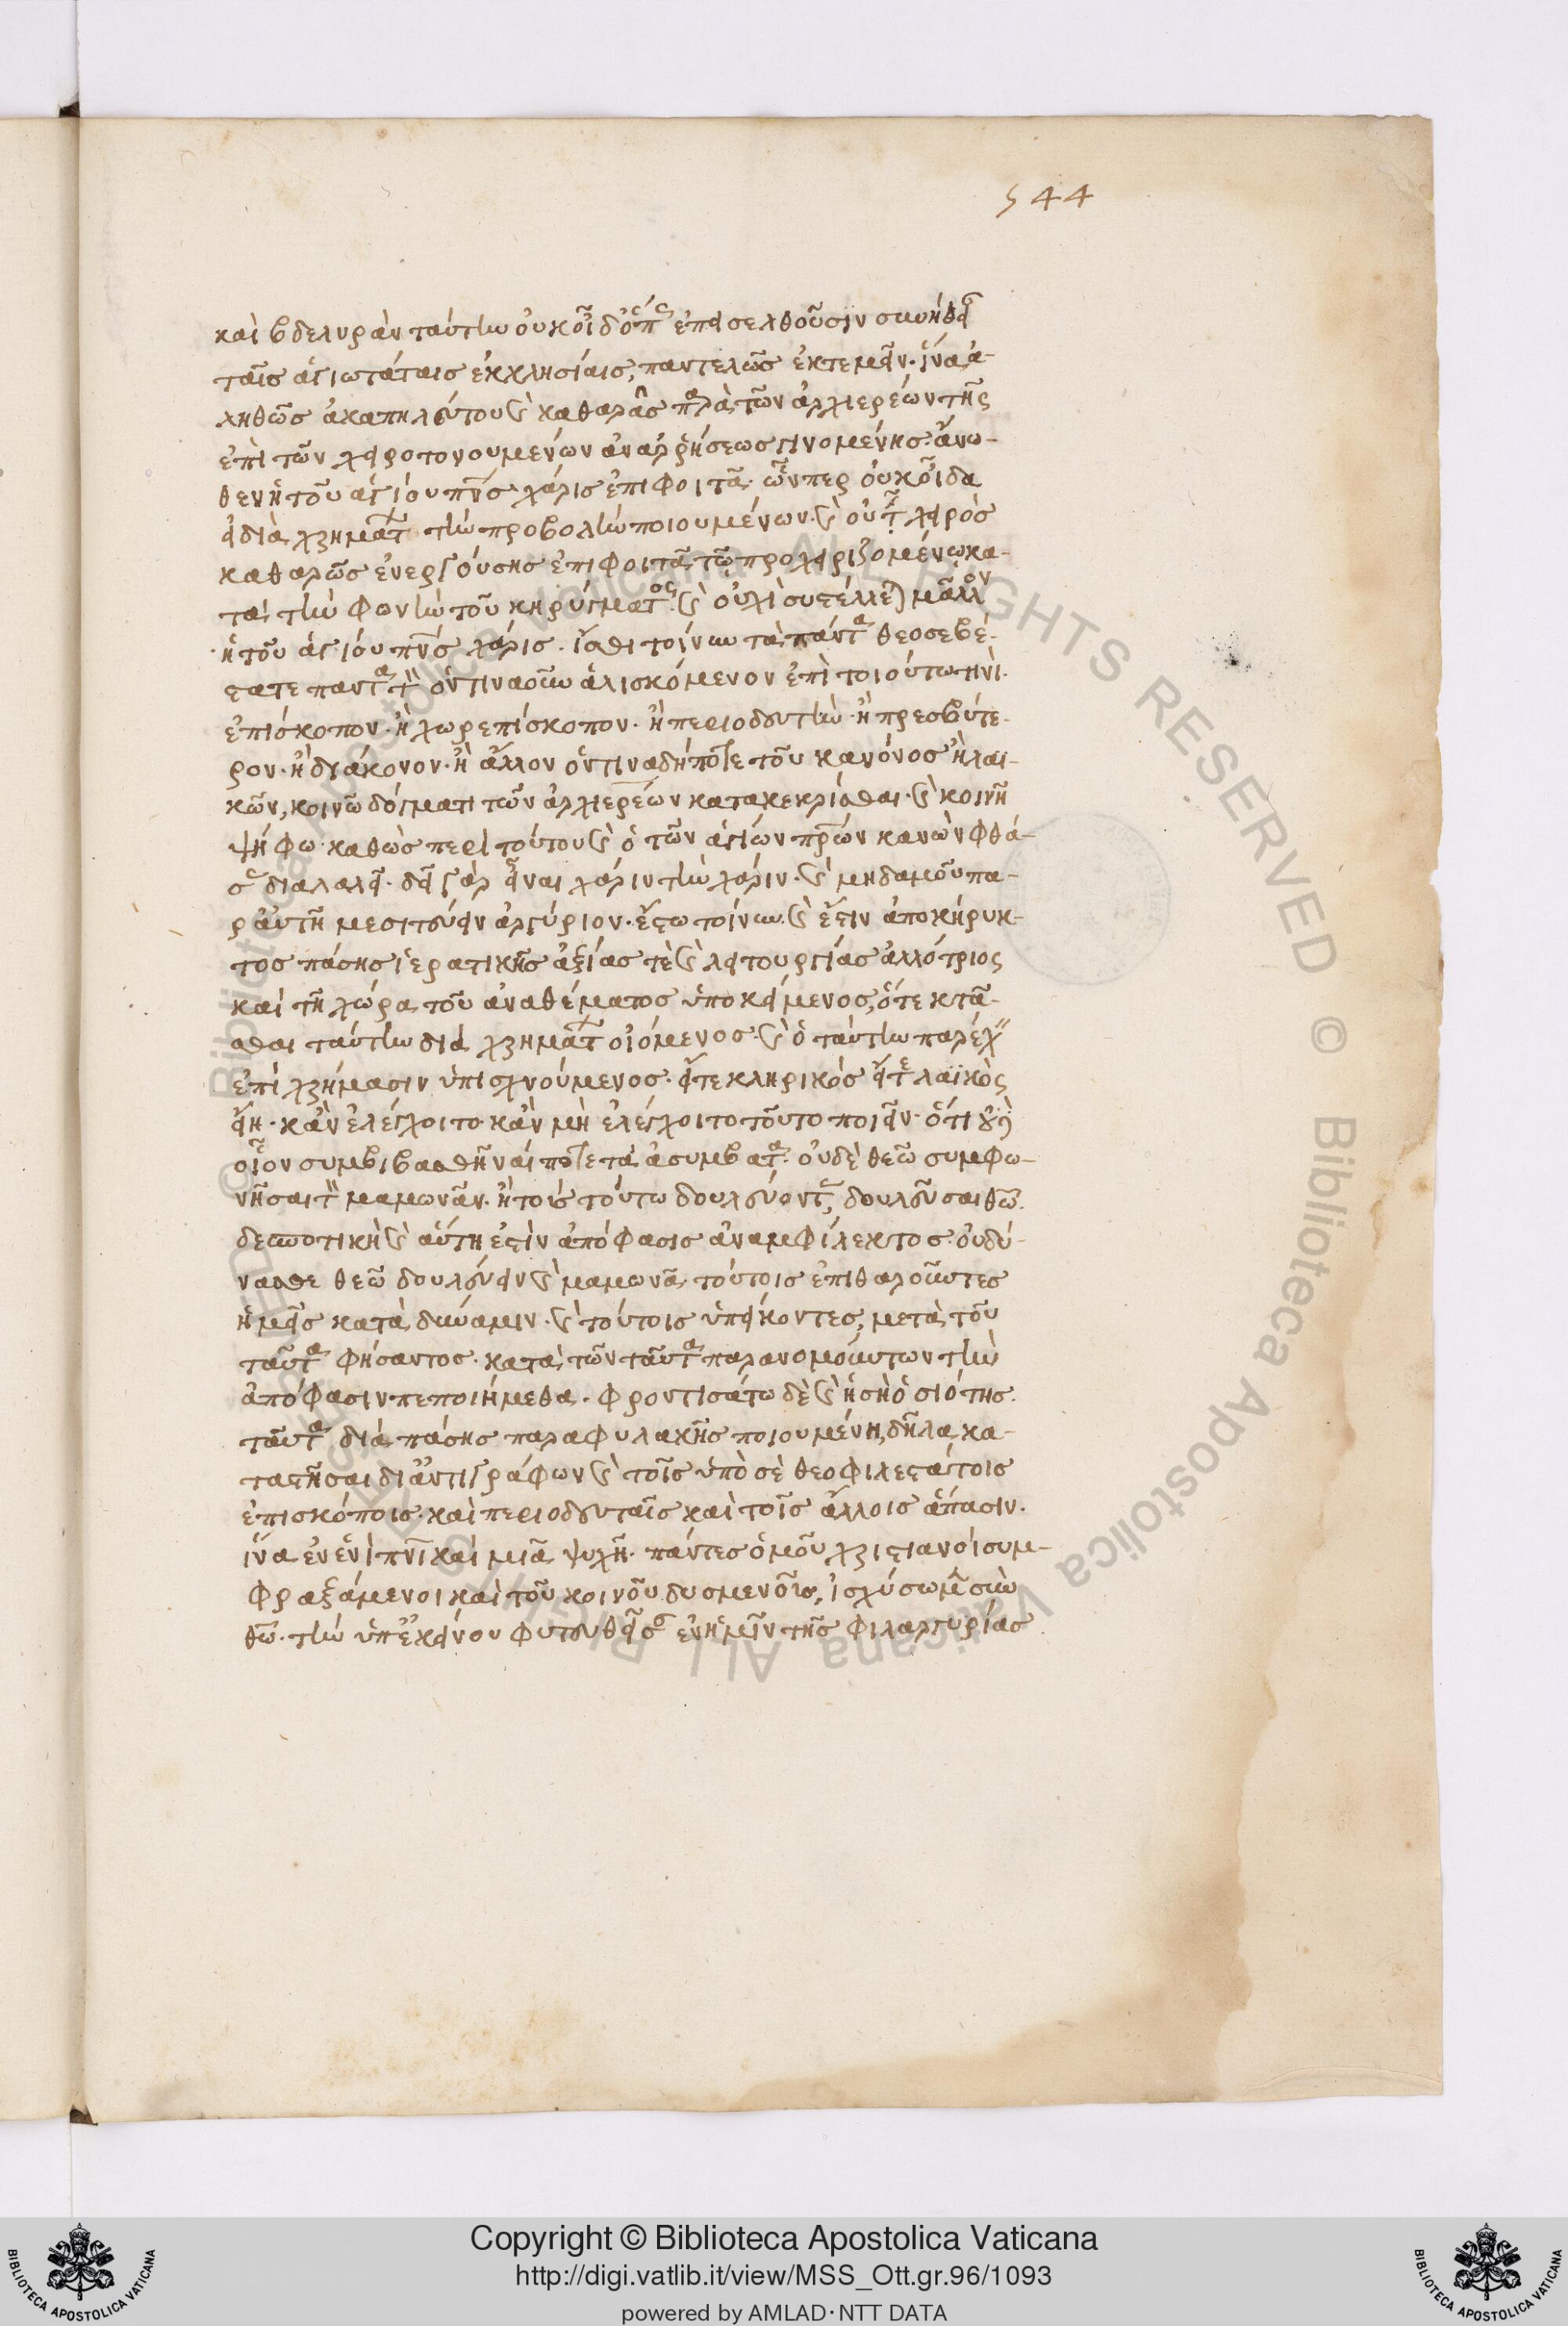 544
καὶ βδελυρὰν ταύτην οὐκ οἶδ' ὅπως ἐπεισελθοῦσιν συνήθειαν
ταῖς ἁγιωτάταις ἐκκλησίαις, παντελῶς ἐκτεμεῖν· ἵνα ἀ-
ληθῶς ἀκαπηλεύτου καὶ καθαρᾶς παρὰ τῶν ἀρχιερέων τῆς
ἐπὶ τῶν χειροτονουμένων ἀναρρήσεως γινομένης· ἄνω-
θεν ἡ τοῦ ἁγίου πν̅ς χάρις ἐπιφοιτᾶ· ὧνπερ οὐκ οἶδα
εἰ διὰ χρημάτων τὴν προβολὴν ποιουμένων· καὶ οὔτε χειρὸς
καθαρῶς ἐνεργούσης ἐπιφοιτᾶ τῷ προχειριζομένῳ κα-
τὰ τὴν φωνὴν τοῦ κηρύγματος· καὶ οὐχὶ συστέλλεται μᾶλλον
ἡ τοῦ ἁγίου πν̅ς χάρις. ἴσθι τοίνυν τὰ πάντα θεοσεβέ-
στατε πάντα τὸν ὁντιναοῦν ἁλισκόμενον ἐπὶ τοιούτω τινὶ·
ἐπίσκοπον· ἢ χωρεπίσκοπον· ἢ περιοδευτὴν· ἢ πρεσβύτε-
ρον· ἢ διάκονον· ἢ ἄλλον ὁντιναδήποτε τοῦ κανόνος ἢ λαϊ-
κῶν, κοινῶ δόγματι τῶν ἀρχιερέων κατακεκρίσθαι· καὶ κοινῆ
ψήφω· καθὼς περὶ τούτου καὶ ὁ τῶν ἁγίων πρ̅ων κανὼν φθά-
σας διαλαλεῖ· δεῖ γὰρ εἶναι χάριν τὴν χάριν· καὶ μηδαμοῦ πα-
ρ' αὐτῆ μεσιτεύειν ἀργύριον· ἔστω τοίνυν καὶ ἔστιν ἀποκήρυκ-
τος πάσης ἱερατικῆς ἀξίας τὲ καὶ λειτουργίας ἀλλότριος
καὶ τῆ χώρα τοῦ ἀναθέματος ὑποκείμενος, ὅτε κτᾶ-
σθαι ταύτην διὰ χρημάτων οἰόμενος· καὶ ὁ ταύτην παρέχειν
ἐπὶ χρήμασιν ὑπισχνούμενος· εἴτε κληρικὸς εἴτε λαϊκὸς
εἴη· κἂν ἐλέγχοιτο κἂν μὴ ἐλέγχοιτο τοῦτο ποιεῖν· ὅτι οὐδὲ
οἷον συμβιβασθῆναί ποτε τὰ ἀσύμβατα· οὐδὲ θεῶ συμφω-
νῆσαι τὸν μαμωνᾶν· ἢ τοὺς τούτω δουλεύοντας, δουλεῦσαι θῶ.
δεσποτικὴ καὶ αὕτη ἐστὶν ἀπόφασις ἀναμφίλεκτος· οὐ δύ-
νασθε θεῶ δουλεύειν καὶ μαμωνᾶ· τούτοις ἐπιθαροῦντες
ἡμεῖς κατὰ δύναμιν· καὶ τούτοις ὑπείκοντες, μετὰ τοῦ
ταῦτα φήσαντος· κατὰ τῶν ταῦτα παρανομούντων τὴν
ἀπόφασιν πεποιήμεθα. φροντισάτω δὲ καὶ ἡ σὴ ὁσιότης·
ταῦτα διὰ πάσης παραφυλακῆς ποιουμένη, δῆλα κα-
ταστῆσαι δι' ἀντιγράφων καὶ τοῖς ὑπὸ σὲ θεοφιλεστάτοις
ἐπισκόποις· καὶ περιοδευταῖς καὶ τοῖς ἄλλοις ἅπασιν·
ἵνα ἐν ἑνὶ πν̅ι καὶ μιᾶ ψυχῆ· πάντες ὁμοῦ χριστιανοὶ συμ-
φραξάμενοι καὶ τοῦ κοινοῦ δυσμενοῦς, ἰσχύσωμεν σὺν
θῶ· τὴν ὑπ' ἐκείνου φυτευθεῖσαν ἐν ἡμῖν τῆς φιλαργυρίας
Copyright © Biblioteca Apostolica Vaticana
http://digi.vatlib.it/view/MSS_Ott.gr.96/1093
powered by AMLAD·NTT DATA
BIBLIOTECA APOSTOLICA VATICANA
BIBLIOTECA APOSTOLICA VATICANA